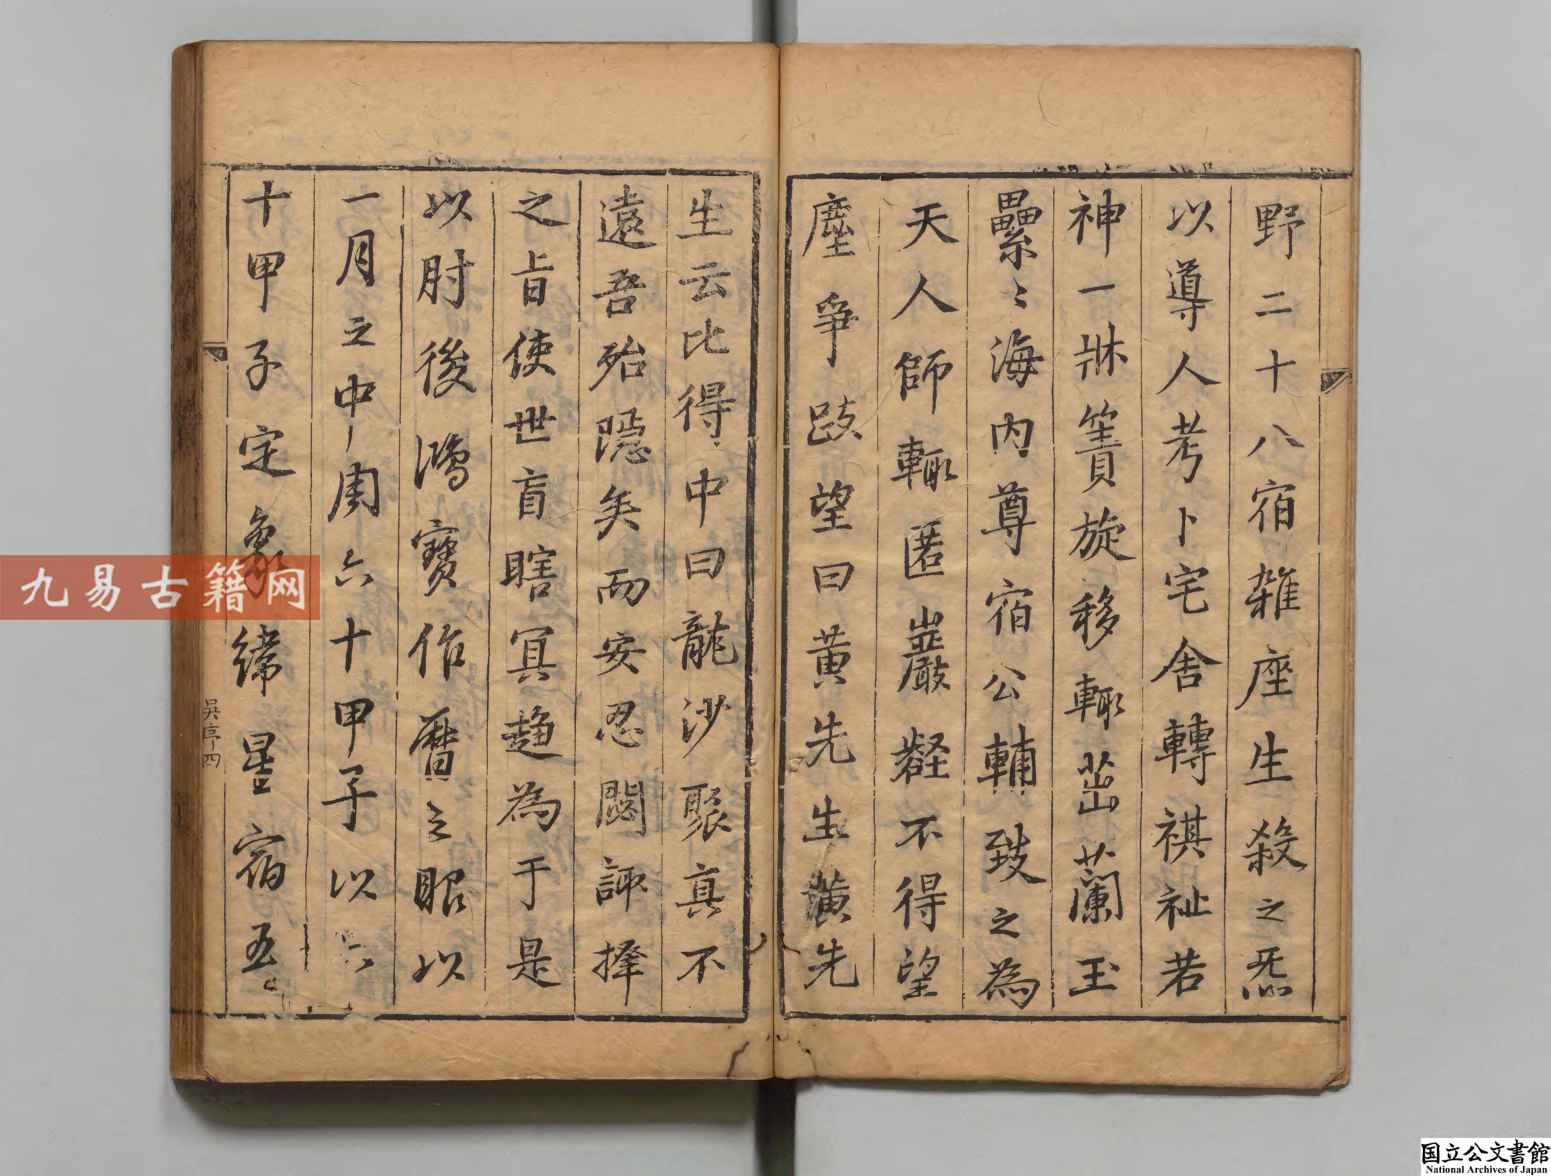 野二十八宿雜座生殺之炁
以導人考卜宅舍轉祺祉若
神一牀簀旋移輙茁蘭玉
纍〻海内尊宿公輔致之為
天人師輙匿巖壑不得望
塵爭跂望曰黃先生黃先
生云比得中曰龍沙聚真不
遠吾殆隱矣而安忍閟諏擇
之旨使世盲瞎冥趨為于是
以肘後鴻寶作曆之眼以
一月之中周六十甲子以六
十甲子定象緯星宿五〻
吳序 四
九易古籍网
国立公文書館
National Archives of Japan